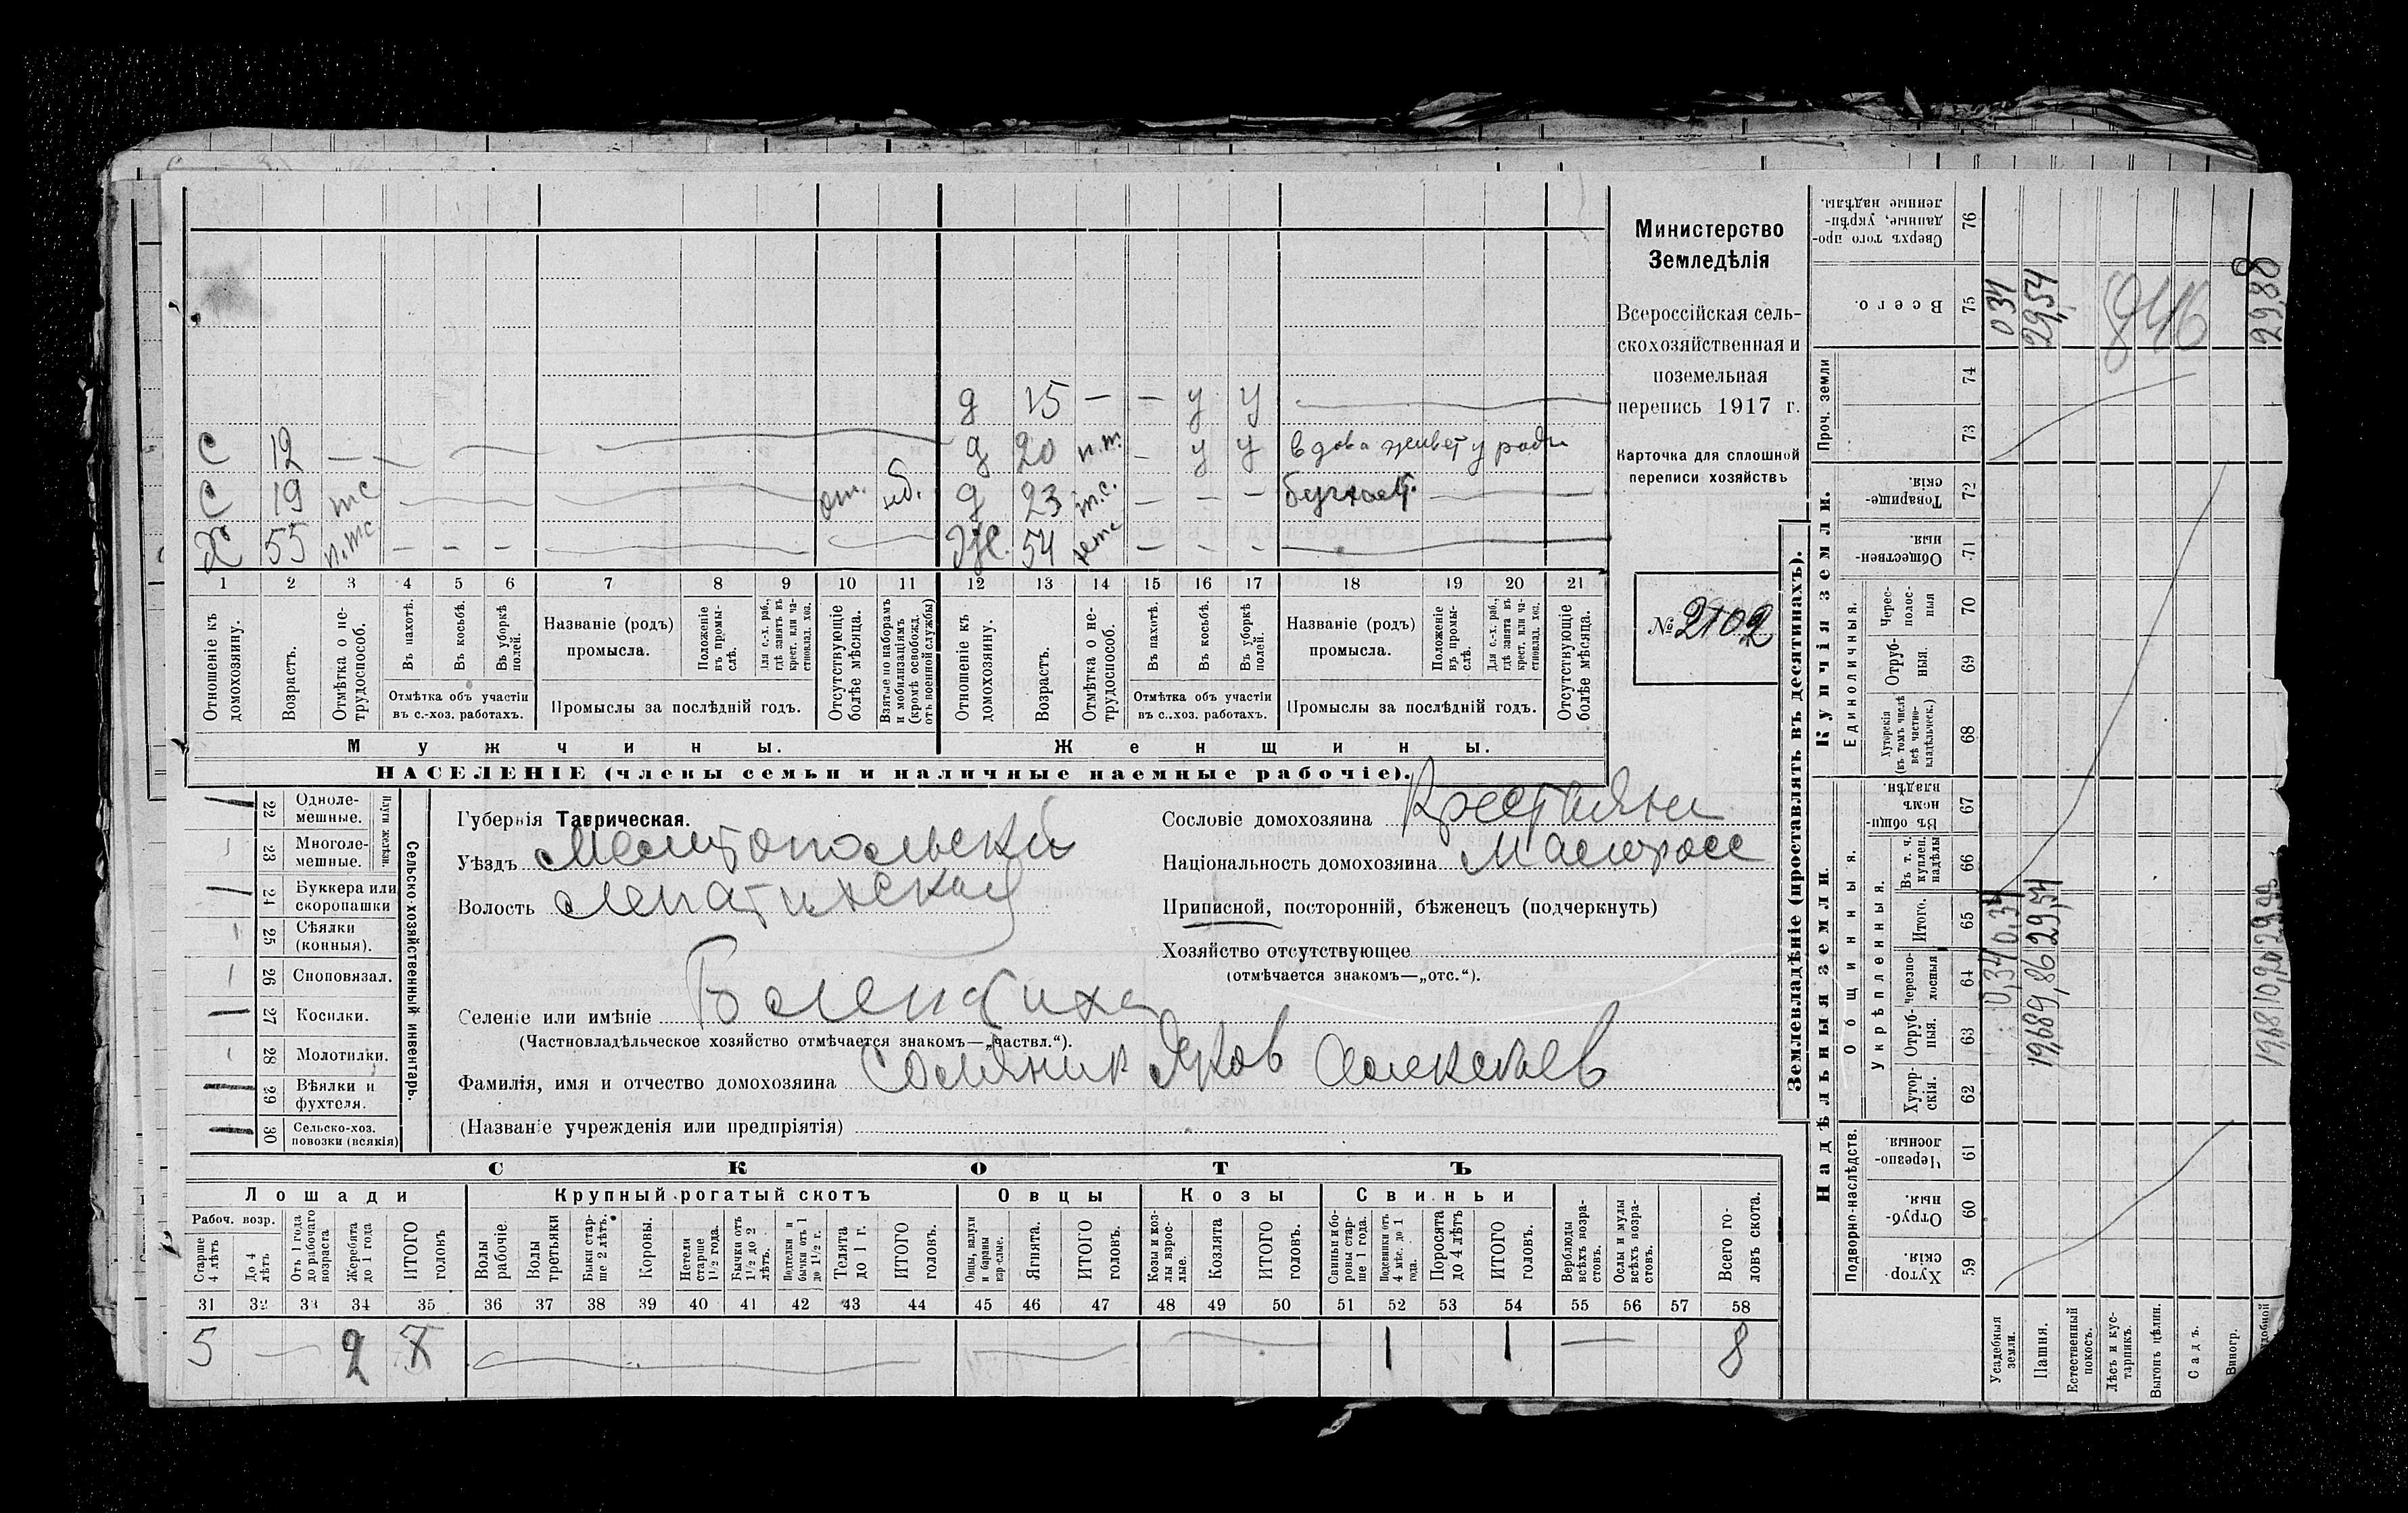 д 15 — — у у
С 12 — д 20 п.т. — у у вдова живет у роди
С 19 тс от. нб. д 23 т.с. — — —
Х 55 п.тс — — — Ж. 54 — — —
1 2 3 4 5 6 7 8 9 10 11 12 13 14 15 16 17 18 19 20 21
Отношеніе къ домохозяину.
Возрастъ.
Отмѣтка о не-трудоспособ.
Въ пахотѣ.
Въ косьбѣ.
Въ уборкѣ полей.
Отмѣтка объ участіи
въ с.-хоз. работахъ.
Названіе (родъ)
промысла.
Положеніе въ промы-слѣ.
Для с.-х. раб., гдѣ занятъ въ крест. или ча-стновлад. хоз.
Промыслы за послѣдній годъ.
Отсутствующіе болѣе мѣсяца.
Взятые по наборамъ и мобилизаціямъ (кромѣ освобожд. отъ военной службы)
Отношеніе къ домохозяину.
Возрастъ.
Отмѣтка о не-трудоспособ.
Въ пахотѣ.
Въ косьбѣ.
Въ уборкѣ полей.
Отмѣтка объ участіи
въ с..хоз. работахъ.
Названіе (родъ)
промысла.
Положеніе въ промы-слѣ.
Для с.-х. раб., гдѣ занята въ крест. или ча-стновлад. хоз.
Промыслы за послѣдній годъ.
Отсутствующіе болѣе мѣсяца.
Мужчины. Женщины.
НАСЕЛЕНІЕ (члены семьи и наличные наемные рабочіе).
Министерство
Земледѣлія
Всероссійская сель-
скохозяйственная и
поземельная
перепись 1917 г.
Карточка для сплошной
переписи хозяйствъ
№ 2102
22 Одноле-мешные.
23 Многоле-мешные.
Плуги желѣзн.
24 Буккера или скоропашки
25 Сѣялки (конныя).
26 Сноповязал.
27 Косилки.
28 Молотилки.
29 Вѣялки и фухтеля.
30 Сельско-хоз. повозки (всякія)
Сельско-хозяйственный инвентарь.
Губернія Таврическая.
Уѣздъ Мелитопольский
Волость Лепатихская
Селеніе или имѣніе Б Лепатиха
(Частновладѣльческое хозяйство отмѣчается знакомъ—„частвл.“).
Фамилія, имя и отчество домохозяина Соляник Яков Алексеев
(Названіе учрежденія или предпріятія)
Сословіе домохозяина Крестьяни
Національность домохозяина Малорос
Приписной, посторонній, бѣженецъ (подчеркнуть)
Хозяйство отсутствующее
(отмѣчается знакомъ—„отс.“).
СКОТЪ
Лошади Крупный рогатый скотъ Овцы Козы Свиньи
Рабоч. возр.
Старше 4 лѣтъ
До 4 лѣтъ
Отъ 1 года до рабочаго возраста
Жеребята до 1 года
ИТОГО головъ
Волы рабочіе
Волы третьяки
Быки стар-ше 2 лѣтъ.
Коровы.
Нетели старше 1½ года.
Бычки отъ 1½ до 2 лѣтъ.
Подтелки и бычки отъ 1 до 1½ г.
Телята до 1 г.
ИТОГО головъ.
Овцы, валухи и бараны взрослые.
Ягнята.
ИТОГО головъ.
Козы и коз-лы взрос-лые.
Козлята
ИТОГО головъ.
Свиньи и бо-ровы стар-ше 1 года.
Подсвинки отъ 4 мѣс. до 1 года.
Поросята до 4 лѣтъ
ИТОГО головъ.
Верблюды всѣхъ возра-стовъ.
Ослы и мулы всѣхъ возра-стовъ.
Всего го-ловъ скота.
31 32 33 34 35 36 37 38 39 40 41 42 43 44 45 46 47 48 49 50 51 52 53 54 55 56 57 58
5 — 2 7 1 1 — 8
Землевладѣніе (проставлять въ десятинахъ).
Надѣльныя земли. Купчія земли.
Подворно-наслѣдств.
Общинныя.
Укрѣпленныя.
Единоличныя.
Проч. земли
Хутор-скія. 59
Отруб-ныя. 60
Черезпо-лосныя. 61
Хутор-скія. 62
Отруб-ныя. 63
черезпо-лосныя 64
Итого. 65
Въ т. ч. куплен. надѣлы 66
Въ общин-номъ владѣн. 67
Хуторскія (въ томъ числѣ всѣ частно-владѣльческ.) 68
Отруб-ныя. 69
Черес-полос-ныя 70
Обществен-ныя. 71
Товарище-скія. 72
73
74
Всего. 75
Сверхъ того про-данные, укрѣп-ленные надѣлы. 76
Усадебныя земли. 0,34 0,34 034
Пашня. 19,68 9,86 29,54 29,54
Естественный покосъ.
Лѣсъ и кус-тарникъ.
Выгонъ цѣлин.
Садъ.
Виногр.
19,68 10,20 29,88 29,88
846
8